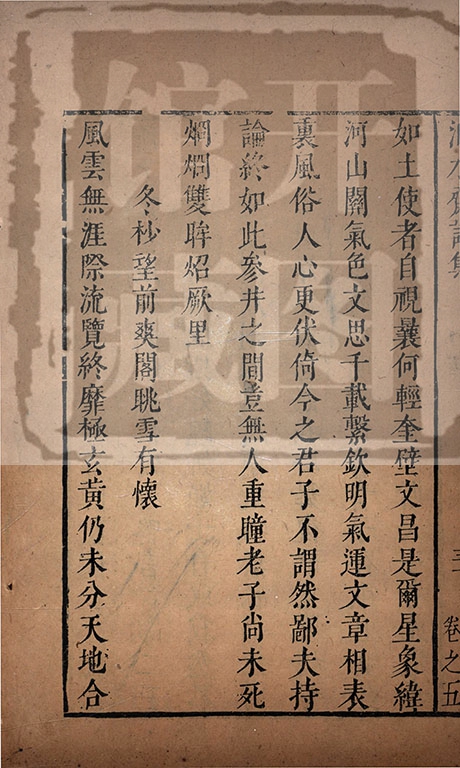 卷之五
如土使者自視曩何輕奎壁文昌是爾星象緯
河山關氣色文思千載繫欽明氣運文章相表
裏風俗人心更伏倚今之君子不謂然鄙夫持
論終如此參井之間豈無人重瞳老子尙未死
炯炯雙眸炤厥里
冬杪望前爽閣眺雪有懷
風雲無涯際流覽終靡極玄黃仍未分天地合
開圖
館藏